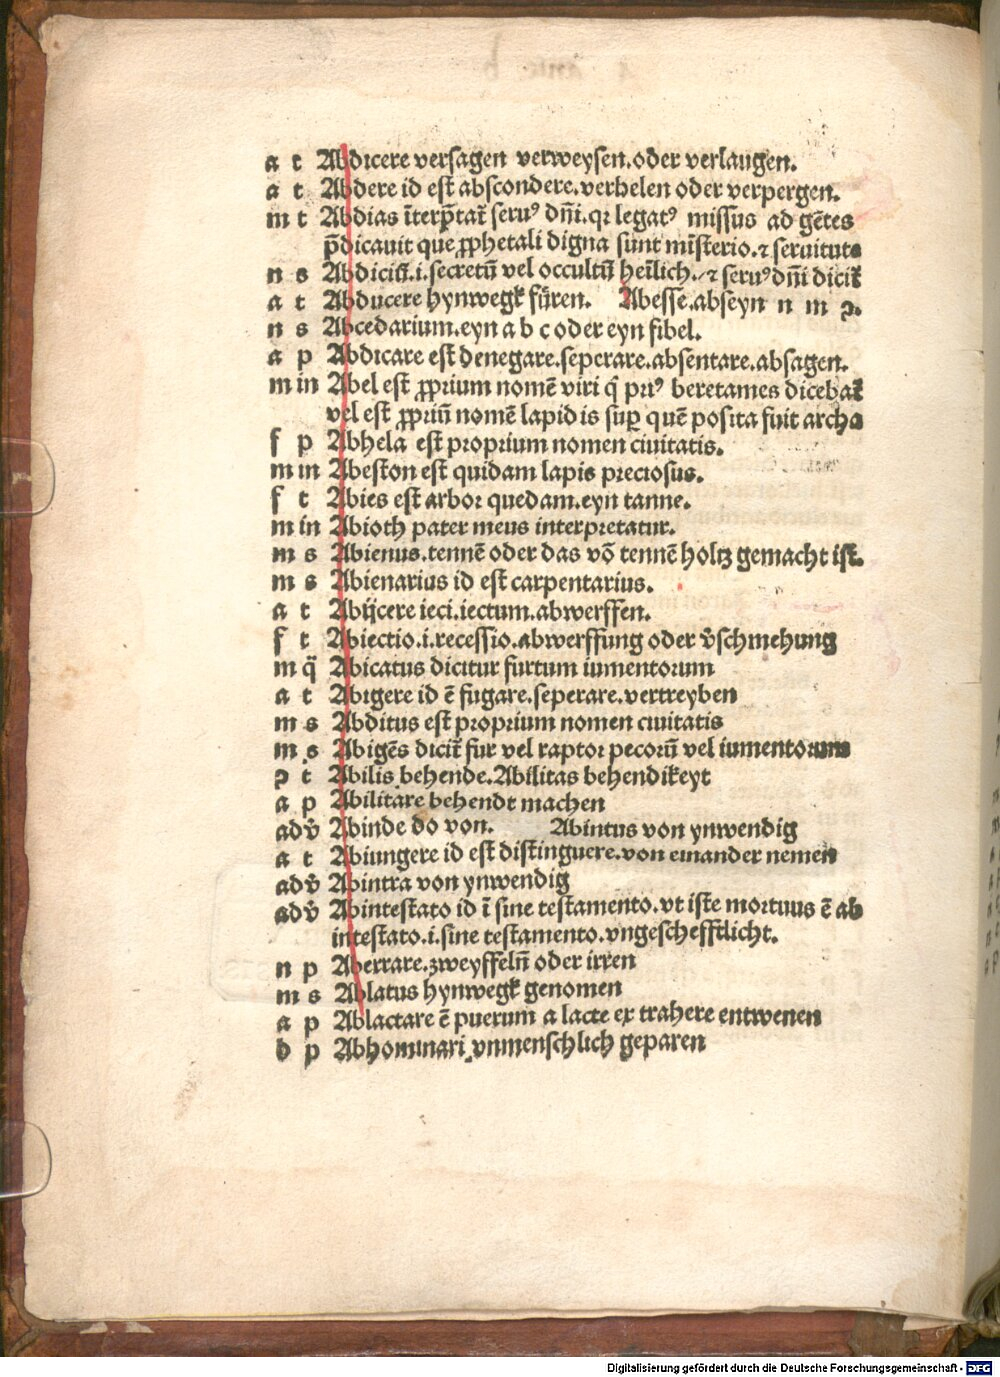 a t Abdicere versagen verweysen.oder verlaugen.
a t Abdere id est abscondere.verhelen oder verpergen.
m t Abdias īterp̄tat̄ seruꝰ dn̄i.qꝛ legatꝰ missus ad gētes
p̄dicauit que ꝓphetali digna sunt misterio.⁊ seruitute
n s Abdiciū.i.secretū vel occultū heīlich.⁊ seruꝰ dn̄i dicit̄
a t Abducere hynwegk füren. Abesse.abseyn n m ꝯ.
n s Abcedarium.eyn a b c oder eyn fibel.
a p Abdicare est denegare.seperare.absentare.absagen.
m in Abel est ꝓprium nomē viri q̄ priꝰ beretames dicebat̄
vel est ꝓpriū nomē lapidis suꝑ quē posita fuit archa
f p Abhela est proprium nomen ciuitatis.
m in Abeston est quidam lapis preciosus.
f t Abies est arbor quedam.eyn tanne.
m in Abioth pater meus interpretatur.
m s Abienus.tennē oder das vō tennē holtz gemacht ist.
m s Abienarius id est carpentarius.
a t Abijcere ieci.iectum.abwerffen.
f t Abiectio.i.recessio.abwerffung oder v̄schmehung
m q̈ Abicatus dicitur furtum iumentorum
a t Abigere id ē fugare.seperare.vertreyben
m s Abditus est proprium nomen ciuitatis
m s Abigēs dicit̄ fur vel raptor pecorū vel iumentorum
ꝯ t Abilis behende.Abilitas behendikeyt
a p Abilitare behendt machen
adv̄ Abinde do von. Abintus von ynwendig
a t Abiungere id est distinguere.von einander nemen
adv̄ Abintra von ynwendig
adv̄ Abintestato id ī sine testamento.vt iste mortuus ē ab
intestato.i.sine testamento.vngeschefftlicht.
n p Aberrare.zweyffeln̄ oder irren
m s Ablatus hynwegk genomen
a p Ablactare ē puerum a lacte ex trahere entwenen
d p Abhominari vnmenschlich geparen
Digitalisierung gefördert durch die Deutsche Forschungsgemeinschaft - DFG